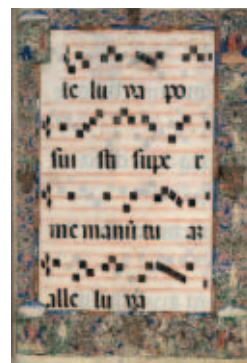 le lu ya po
sui sti supe r
me manū tu aȝ
alle lu ya